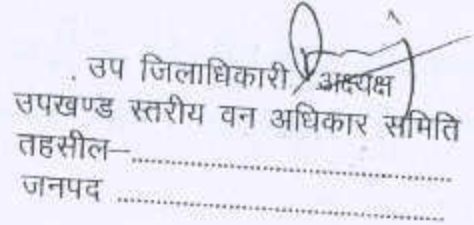 उप जिलाधिकारी / अध्यक्ष
उपखण्ड स्तरीय वन अधिकार समिति
तहसील–..............................................
जनपद ..............................................